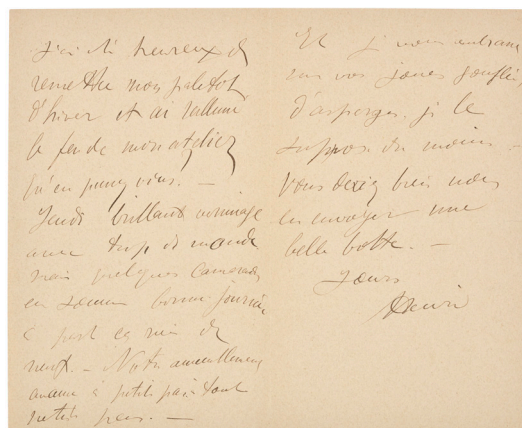 J'ai été heureux de
remettre mon paletot
d'hiver et ai rallumé
le feu de mon atelier
qu'en pensez vous. —
Jeudi brillant vernissage
avec trop de monde
mais quelques camarades
en somme bonne journée
à part ça rien de
neuf. — Notre ameublement
avance à petits pas tout
petits pas. —
Et je vous embrasse
sur vos joues gonflées
d'asperges, je le
suppose du moins. —
Vous devriez bien nous
en envoyer une
belle botte. —
Yours
Henri